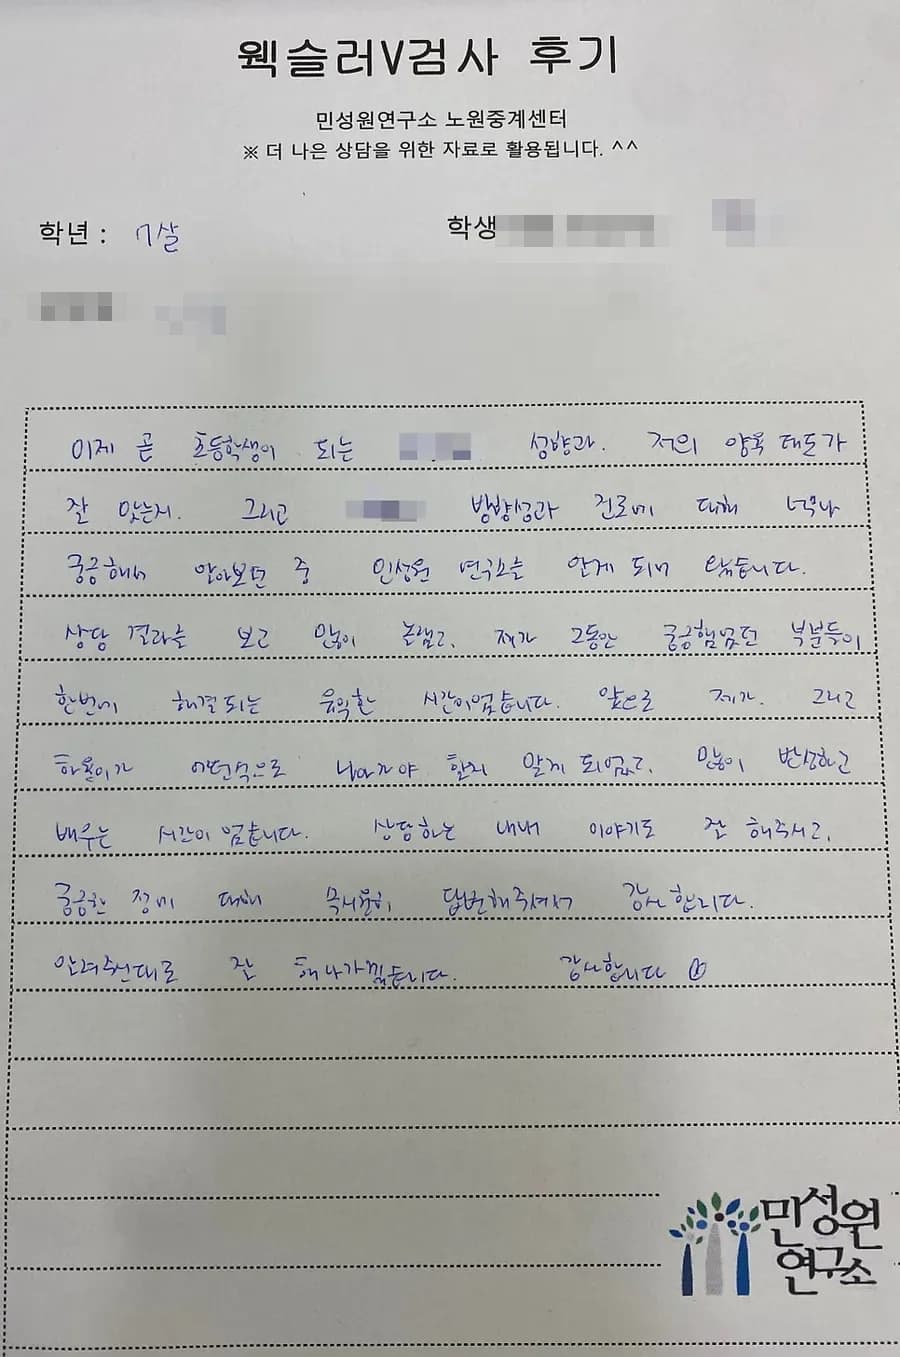 웩슬러V검사 후기
민성원연구소 노원중계센터
※ 더 나은 상담을 위한 자료로 활용됩니다. ^^
학년 : 7살
학생
이제 곧 초등학생이 되는 성향과. 저의 양육 태도가
잘 맞는지. 그리고 방향성과 진로에 대해 너무나
궁금해서 알아보던 중 민성원 연구소를 알게 되어 왔습니다.
상담 결과를 보고 많이 놀랬고, 제가 그동안 궁금했었던 부분들이
한번에 해결되는 유익한 시간이었습니다. 앞으로 제가. 그리고
어떤식으로 나아가야 할지 알게 되었고, 많이 반성하고
배우는 시간이 었습니다. 상담하는 내내 이야기도 잘 해주시고,
궁금한 점에 대해 답변해주셔서 감사합니다.
알려주신대로 잘 해나가겠습니다. 감사합니다
민성원
연구소